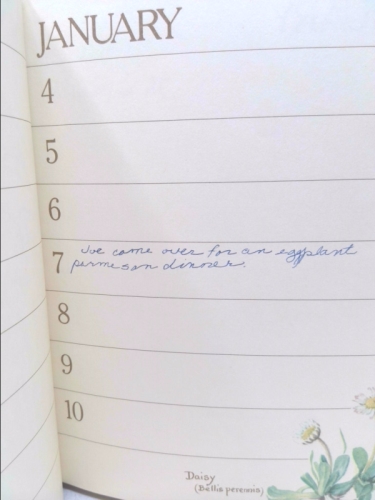 JANUARY
4
5
6
7 Joe come over for an eggplant
permeson dinner.
8
9
10
Daisy
(Bellis perennis)